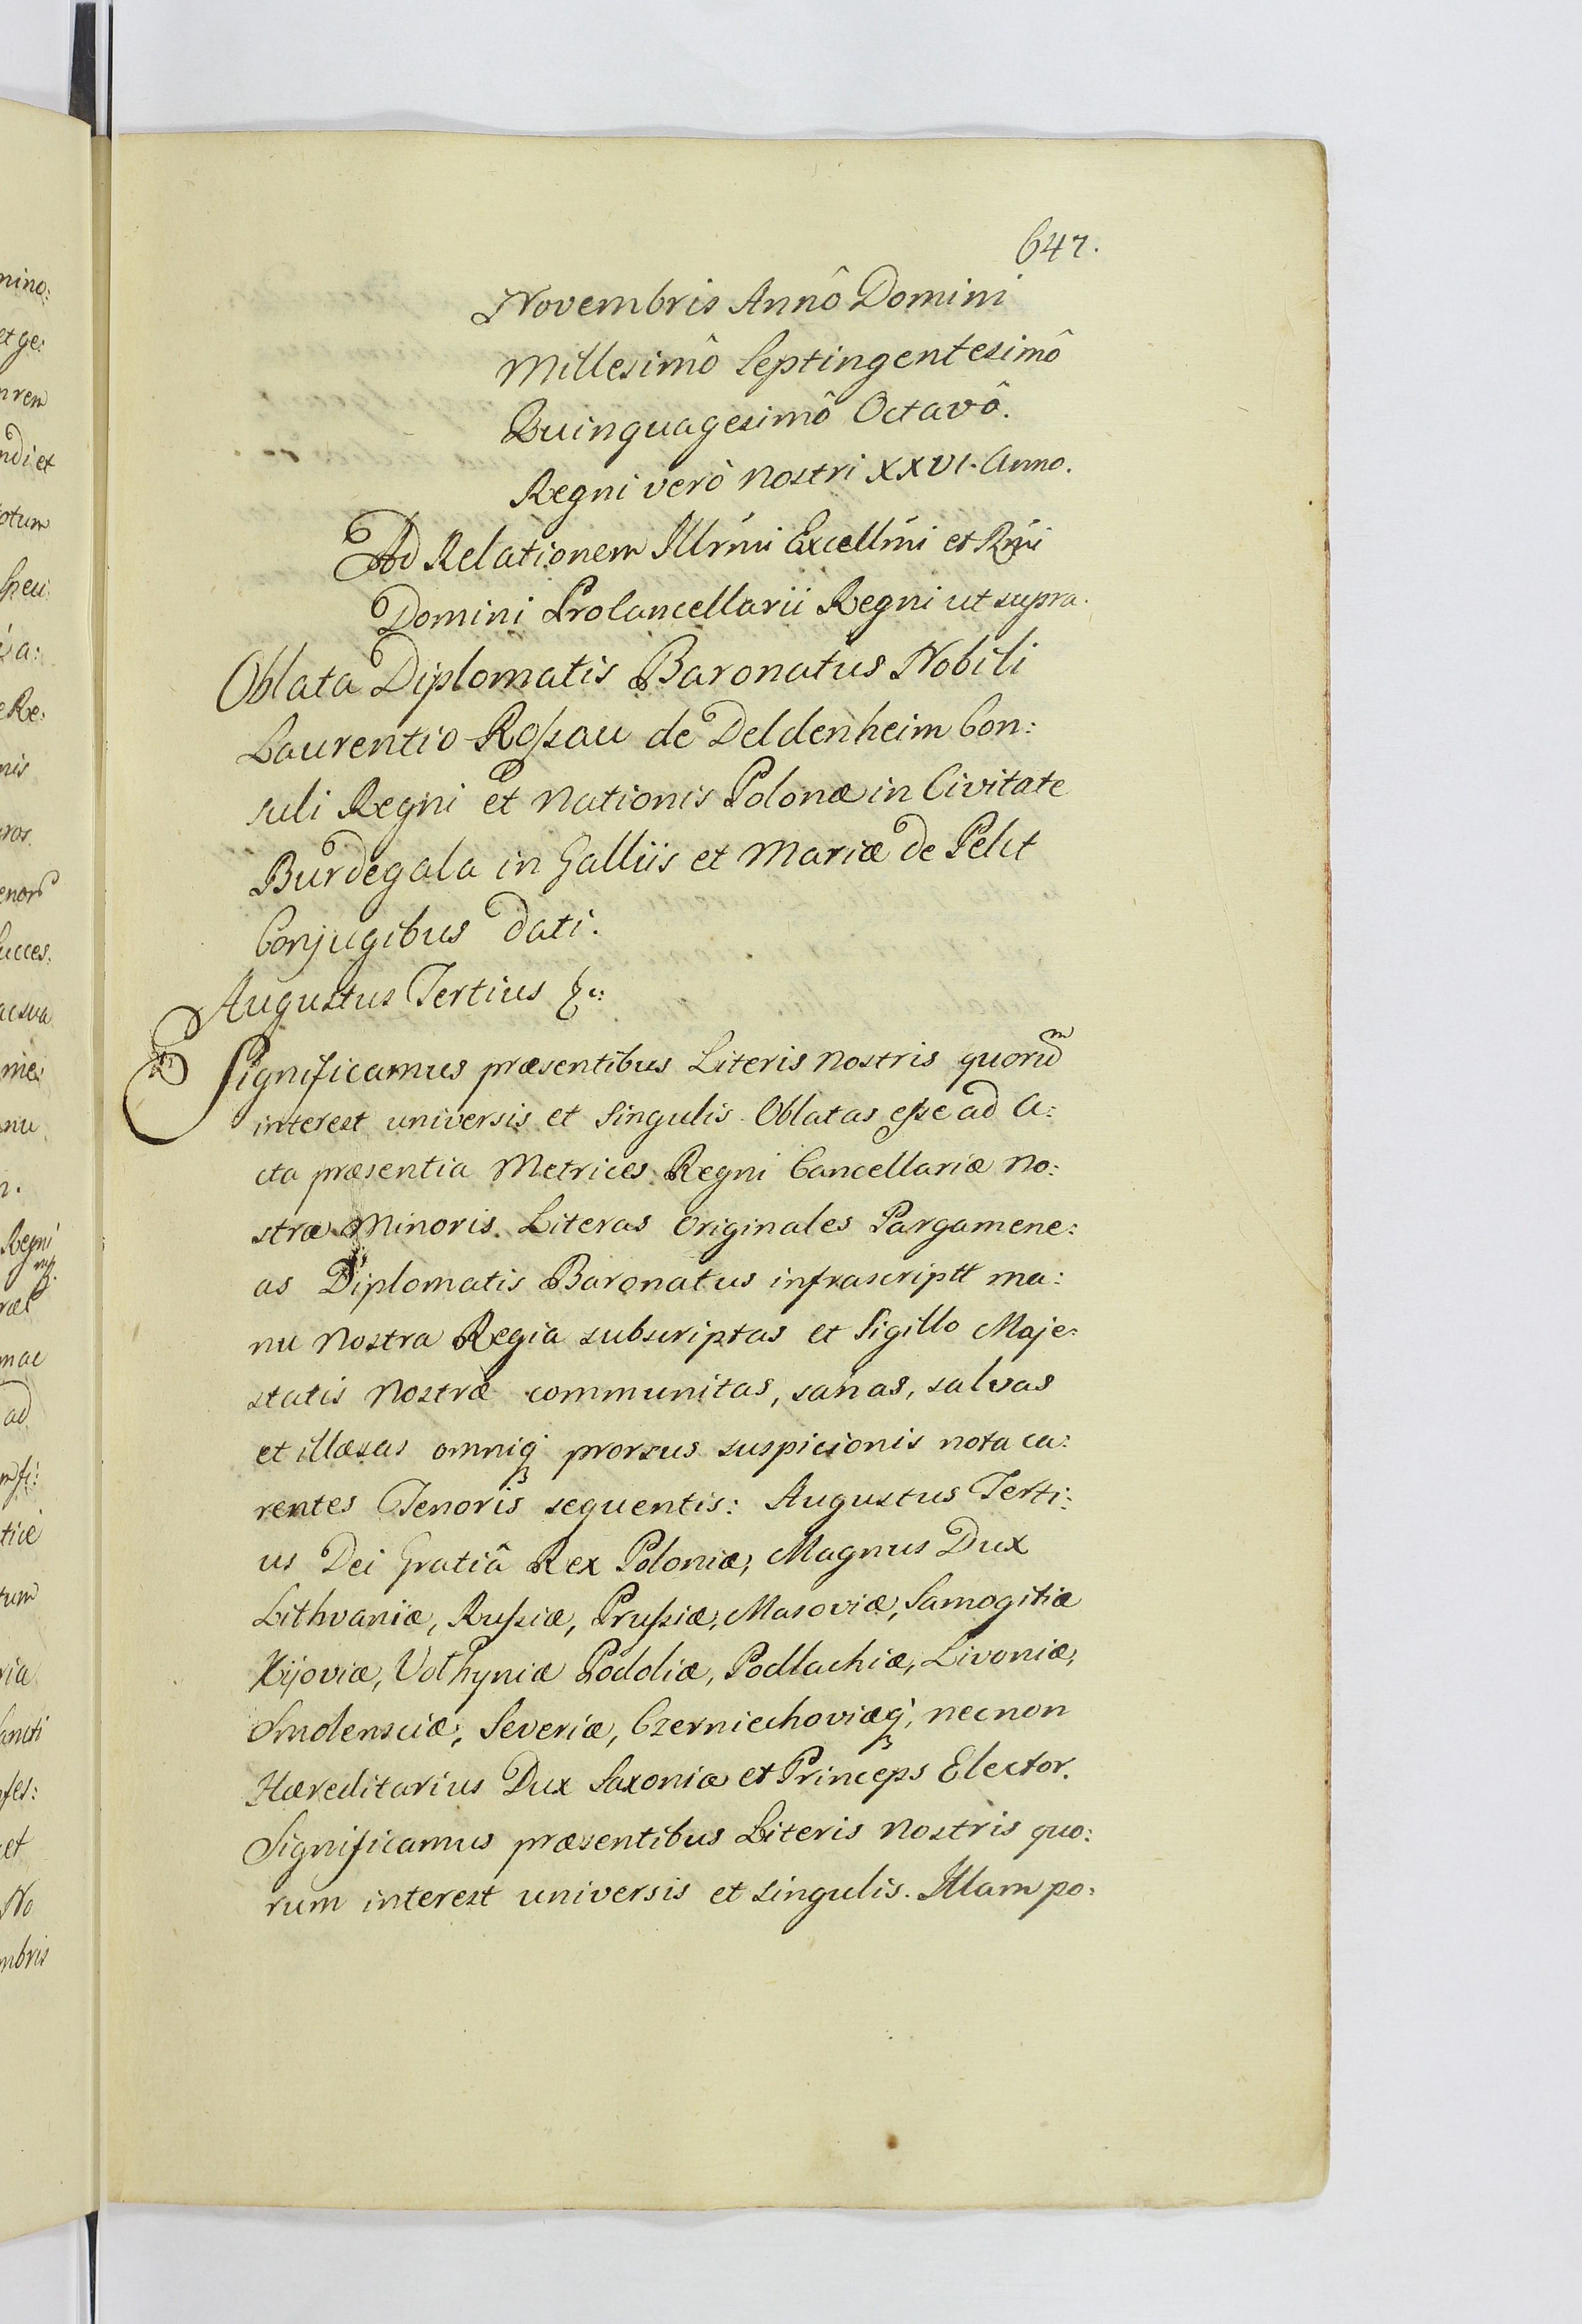 647.
Novembris Annô Domini
Millesimô Septingentesimô
Quinquagesimô Octavô.
Regni verò Nostri XXVI. Anno.
Ad Relationem Illrmi Excellmi et Rmi
Domini ProCancellarii Regni ut supra.
Oblata Diplomatis Baronatus Nobili
Laurentio Rossau de Deldenheim Con:
suli Regni et Nationis Polonæ in Civitate
Burdegala in Galliis et Mariæ de Pelit
Conjugibus dati.
Augustus Tertius &c:
Significamus præsentibus Literis Nostris quorũm
interest universis et singulis Oblatas esse ad A:
cta præsentia Metrices Regni Cancellariæ No:
stræ Minoris Literas Originales Pargamene:
as Diplomatis Baronatus infrascriptt ma:
nu Nostra Regia subscriptas et Sigillo Maje:
statis Nostræ communitas, sanas, salvas
et illæsas omniq; prorsus suspicionis nota ca:
rentes Tenoris sequentis: Augustus Terti:
us Dei Gratiâ Rex Poloniæ, Magnus Dux
Lithvaniæ, Russiæ, Prussiæ, Masoviæ, Samogitiæ
Kijoviæ, Volhyniæ Podoliæ, Podlachiæ, Livoniæ,
Smolensciæ, Severiæ, Czerniechoviæq; necnon
Hæreditarius Dux Saxoniæ et Princeps Elector.
Significamus præsentibus Literis Nostris quo:
rum interest universis et singulis. Illam po: